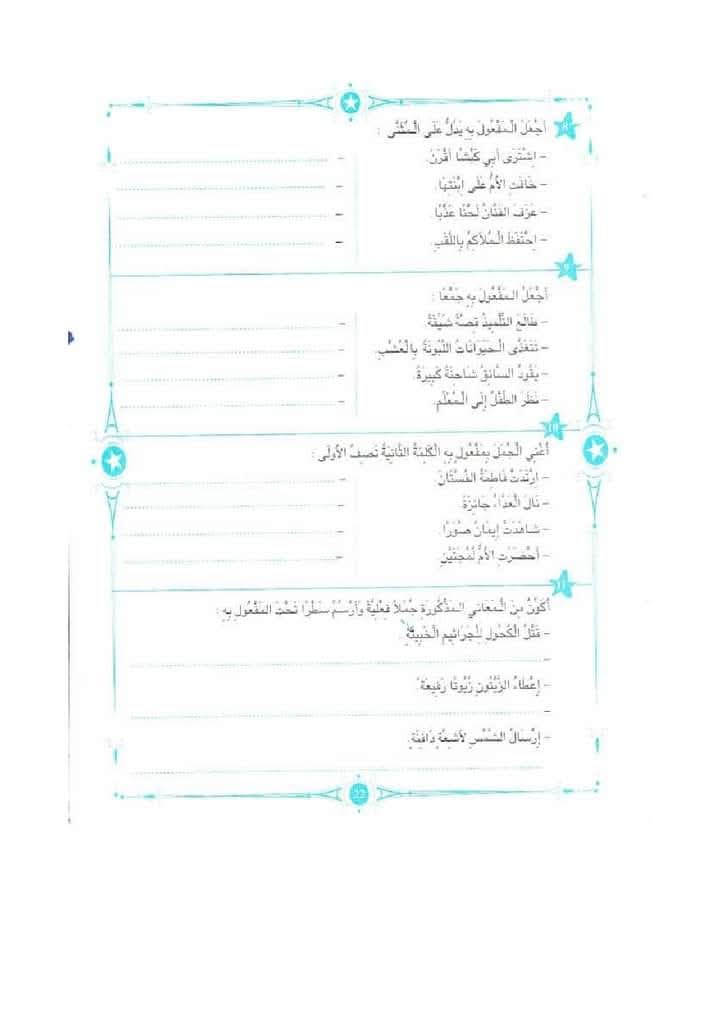 8
أَجْعَلُ الْمَفْعُولَ بِهِ يَدُلُّ عَلَى الْمُثَنَّى :
– اِشْتَرَى أَبِي كَبْشًا أَقْرَنَ. –
– خَافَتِ الأُمُّ عَلَى اِبْنَتِهَا. –
– عَزَفَ الفَنَّانُ لَحْنًا عَذْبًا. –
– اِحْتَفَظَ الْمُلاَكِمُ بِاللَّقَبِ. –
9
أَجْعَلُ الْمَفْعُولَ بِهِ جَمْعًا :
– طَالَعَ التِّلْمِيذُ قِصَّةً شَيِّقَةً. –
– تَتَغَذَّى الْحَيَوَانَاتُ اللَّبُونَةُ بِالْعُشْبِ. –
– يَقُودُ السَّائِقُ شَاحِنَةً كَبِيرَةً. –
– نَظَرَ الطِّفْلُ إِلَى الْمُعَلِّمِ. –
10
أُغْنِي الْجُمَلَ بِمَفْعُولٍ بِهِ الْكَلِمَةُ الثَّانِيَةُ تَصِفُ الأُولَى :
– اِرْتَدَتْ فَاطِمَةُ الفُسْتَانَ. –
– نَالَ الْعَدَّاءُ جَائِزَةً. –
– شَاهَدَتْ إِيمَانُ صُوَرًا. –
– أَحْضَرَتِ الأُمُّ لُمْجَتَيْنِ –
11
أُكَوِّنُ مِنَ الْمَعَانِي الْمَذْكُورَةِ جُمَلاً فِعْلِيَّةً وَأَرْسُمُ سَطْرًا تَحْتَ المَفْعُولِ بِهِ :
– قَتْلُ الْكُحُولِ لِلْجَرَاثِيمِ الْخَبِيثَةِ.
–
– إِعْطَاءُ الزَّيْتُونِ زُيُوتًا رَفِيعَةً.
–
– إِرْسَالُ الشَّمْسِ لأَشِعَّةٍ دَافِئَةٍ.
–
22